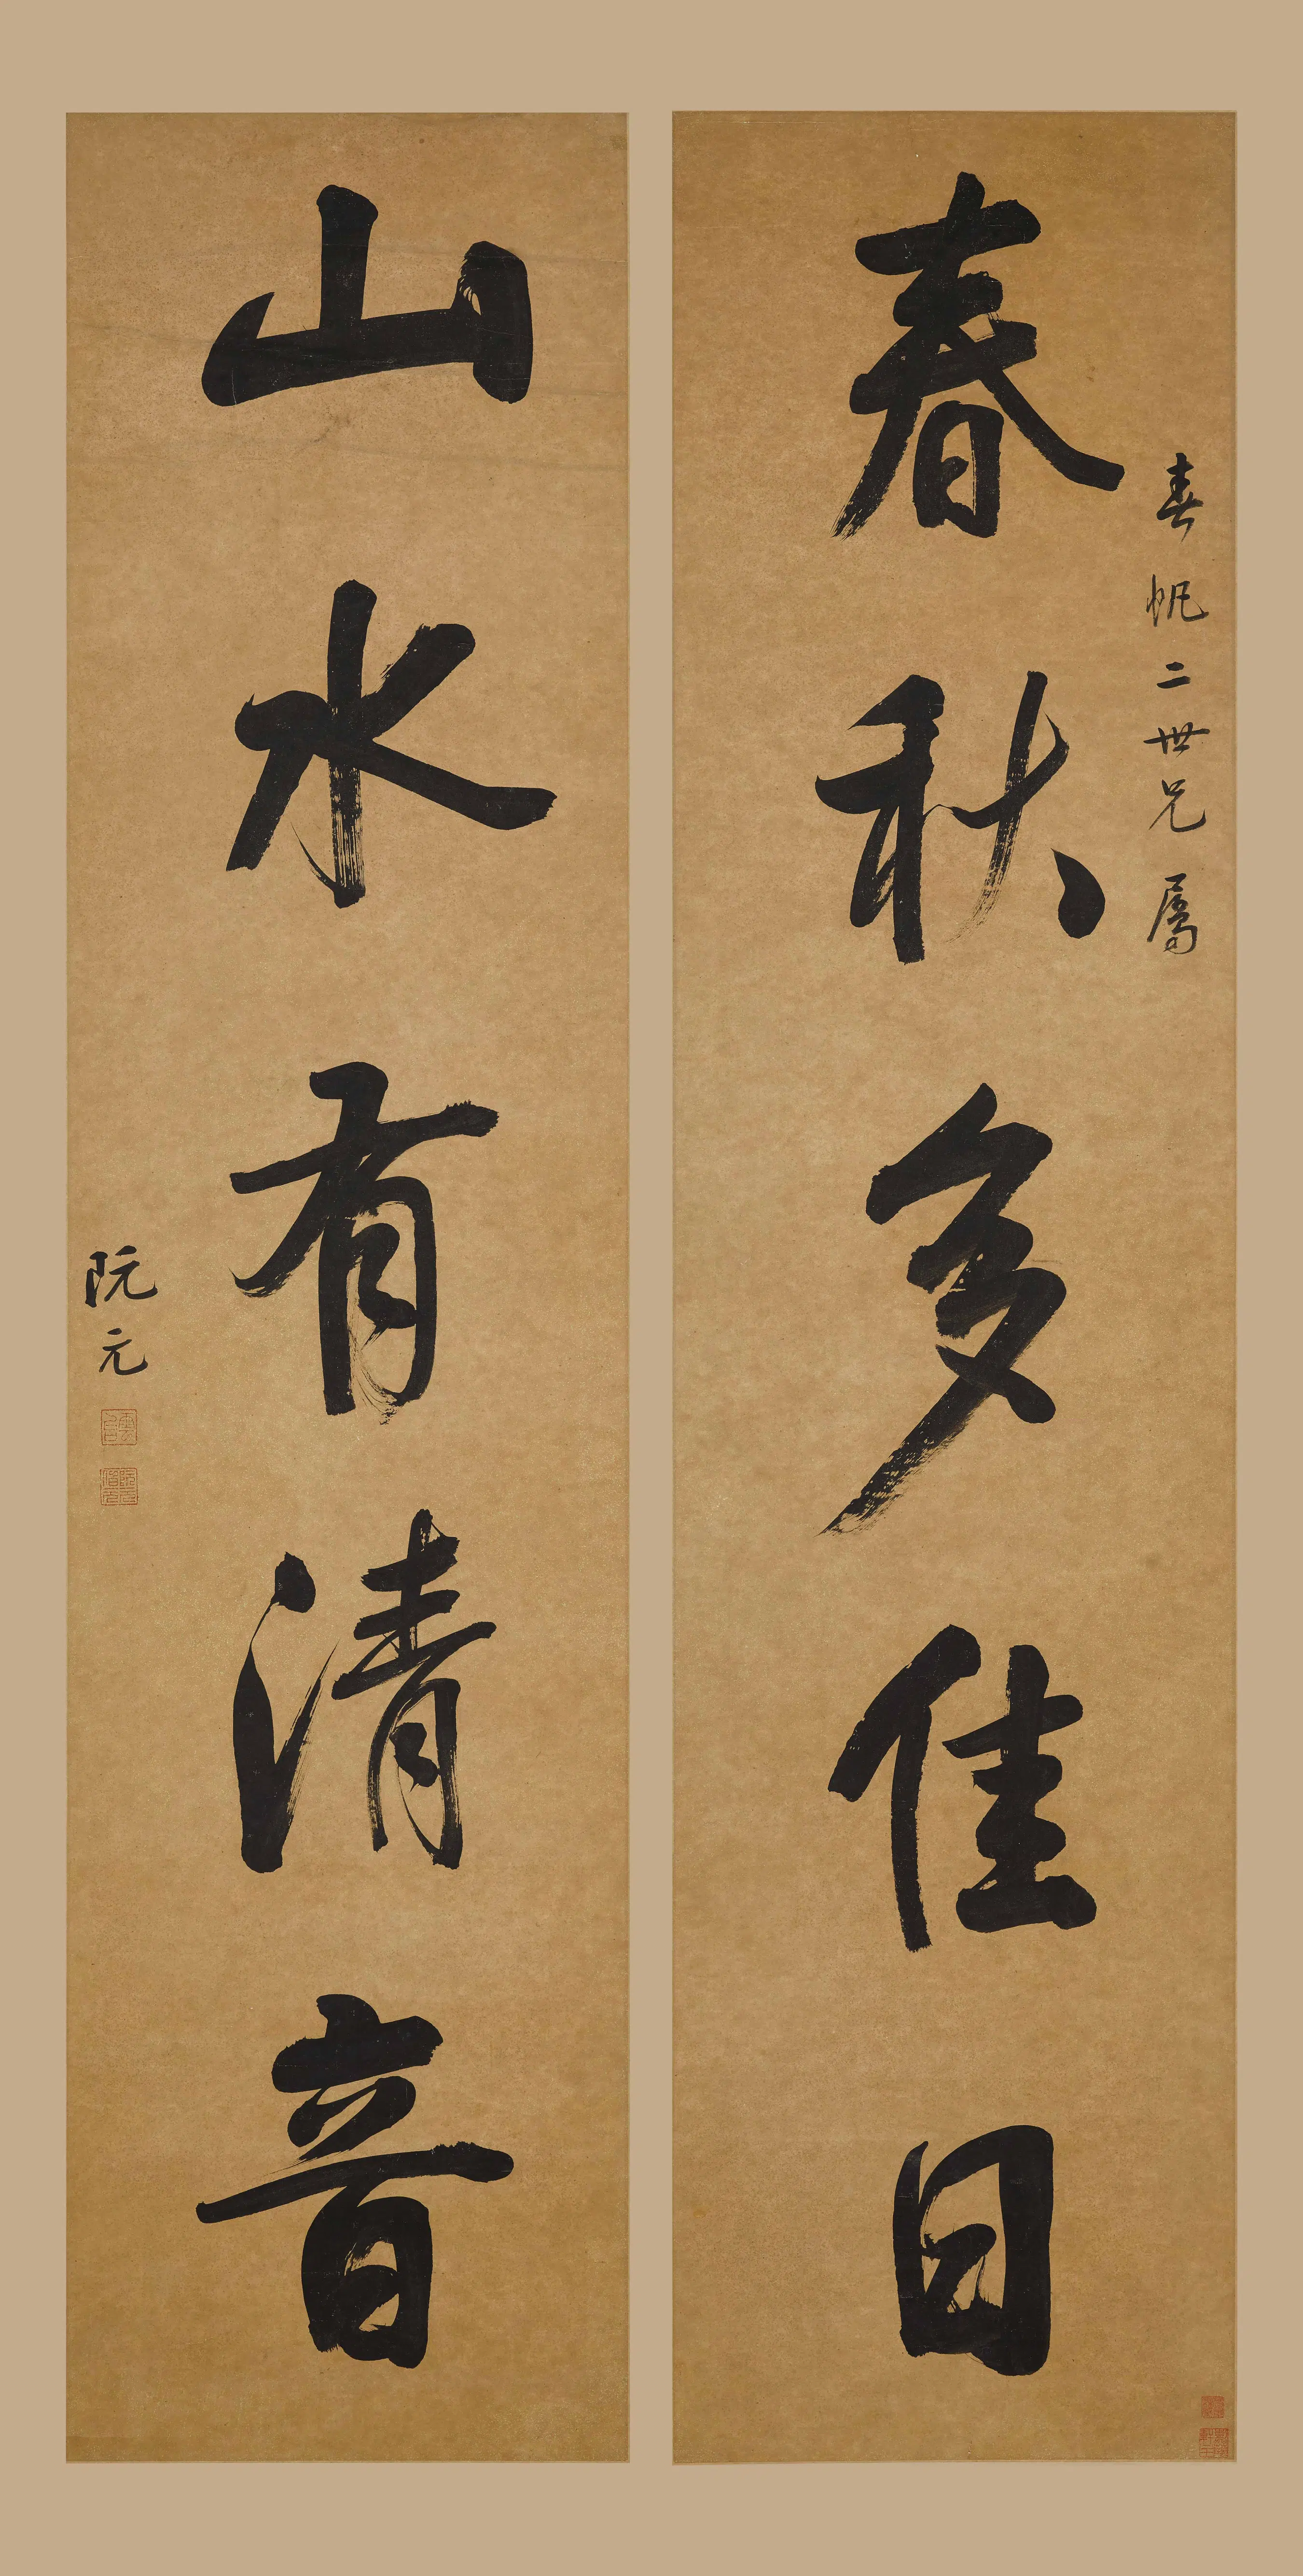 春帆二世兄屬
春秋多佳日
山水有清音
阮元